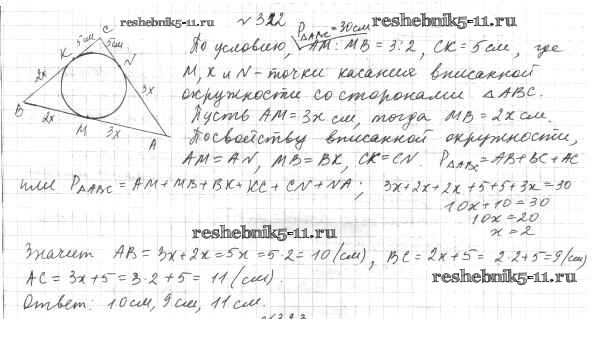 reshebnik5-11.ru
№322
P△ABC = 30см
reshebnik5-11.ru
C
5см 5см
K N
2x 3x
B
2x M 3x A
По условию, AM:MB = 3:2, CK = 5см, где
M, K и N - точки касания вписанной
окружности со сторонами △ABC.
Пусть AM = 3x см, тогда MB = 2x см.
По свойству вписанной окружности,
AM = AN, MB = BK, CK = CN. P△ABC = AB + BC + AC
или P△ABC = AM + MB + BK + KC + CN + NA; 3x+2x+2x+5+5+3x=30
10x+10=30
10x=20
x=2
reshebnik5-11.ru
Значит AB = 3x+2x = 5x = 5·2 = 10(см), BC = 2x+5 = 2·2+5=9(см)
AC = 3x+5 = 3·2+5 = 11(см).
reshebnik5-11.ru
Ответ: 10см, 9см, 11см.